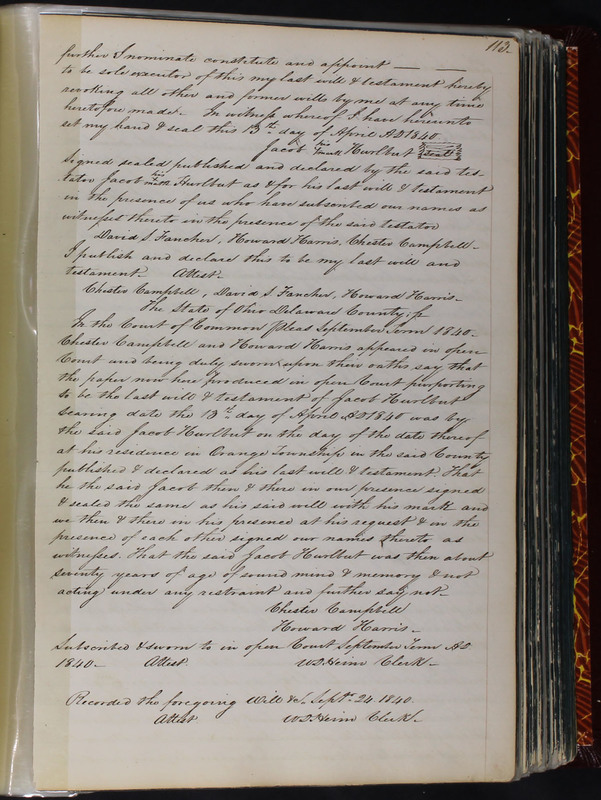 113.
further I nominate constitute and appoint — —
to be sole executor of this my last will & testament hereby
revoking all other and former wills by me at any time
heretofore made. In witness whereof I have hereunto
set my hand & seal this 13th day of April AD 1840.
Jacob his mark Hurlbut seal
Signed sealed published and declared by the said tes-
tator Jacob his mark Hurlbut as & for his last will & testament
in the presence of us who have subscribed our names as
witnesses thereto in the presence of the said testator
David S Fancher, Howard Harris, Chester Campbell.
I publish and declare this to be my last will and
testament. Attest.
Chester Campbell, David S Fancher, Howard Harris.
The State of Ohio Delaware County, ss
In the Court of Common Pleas September term 1840.
Chester Campbell and Howard Harris appeared in open
Court and being duly sworn upon their oaths say that
the paper now here produced in open Court purporting
to be the last will & testament of Jacob Hurlbut
bearing date the 13th day of April AD 1840 was by
the said Jacob Hurlbut on the day of the date thereof
at his residence in Orange Township in the said County
published & declared as his last will & testament. That
he the said Jacob then & there in our presence signed
& sealed the same as his said will with his mark and
we then & there in his presence at his request & in the
presence of each other signed our names thereto as
witnesses. That the said Jacob Hurlbut was then about
seventy years of age of sound mind & memory & not
acting under any restraint and further say not.
Chester Campbell
Howard Harris.
Subscribed & sworn to in open Court September Term AD
1840. Attest. W D Heim Clerk.
Recorded the foregoing Will &c. Sept. 24. 1840.
Attest W D Heim Clerk.